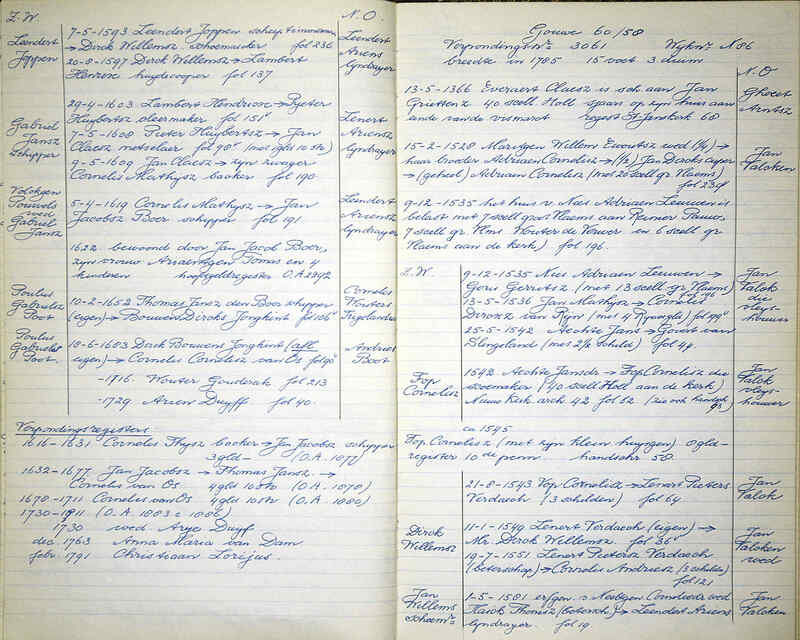 Z.W.
N.O.
7-5-1593 Leendert Joppen scheeptimmerman
Leendert Joppen
→ Dirck Willemsz. schoemaker fol 236
Leendert Ariens lyndrayer
20-8-1597 Dirck Willemsz → Lambert
Henricx huydecooper fol 137
29-4-1603 Lambert Hendricx → Pieter
Huybertsz oleemaker fol 151v
Gabriel Jansz schipper
7-5-1608 Pieter Huybertsz → Jan
Lenert Ariensz lyndrayer
Claesz metselaer fol 90v (met 1 gld 10 str)
9-5-1609 Jan Claesz → zyn zwager
Cornelis Mathysz backer fol 190
Pouwels wed Gabriel Jansz
5-4-1619 Cornelis Mathysz → Jan
Leendert Ariensz lyndrayer
Jacobsz Boer schipper fol 191
1622 bewoond door Jan Jacob Boer,
zyn vrouw Ariaentgen Tomas en 4
kinderen hoofdgeldregister O.A 2272
Poulus Gabrielsz Boot
10-2-1652 Thomas Jansz den Boer schipper
Cornelis Wouters
(eigen) → Bouwen Dircks Jongkint fol 106v
Poulus Gabrielsz Boot
18-6-1683 Dirck Bouwens Jongkint (afl
Andries Boot
eigen) → Cornelis Cornelisz van Os fol 90v
-1716. Wouter Goudesak fol 213
-1729 Arien Duyff fol 40
Verpondingsregisters
1616-1631 Cornelis Thysz backer → Jan Jacobsz schipper
3 gld- (O.A. 1077)
1632-1677 Jan Jacobsz → Thomas Jansz. →
Cornelis van Os 4 gld 10 str (O.A. 1078)
1678-1711 Cornelis van Os 4 gld 10 str (O.A. 1080)
1730-1811 (O.A. 1083
1730 wed Arye Duyff
dec 1763 Anna Maria van Dam
febr 1791 Christiaan Lorijus.
Gouwe 60/58
Verpondings nr. 3061 Wyk nr. N 86
breedte in 1785 15 voet 3 duim
N.O
13-5-1366 Everaert Claesz is sch. aan Jan
Ghoest Arntsz
40 scell Holl spaer op zyn huis aan
ende van de vismarct regest St. Janskerk 68
15-2-1528 Maritgen Willem Ewoutsz wed (¼) →
Jan Valcken
haar broeder Adriaen Cornelisz → (½) Jan Dircks cuyper
→ (geheel) Adriaen Cornelisz (met 20 scell gr Vlaems)
fol 23v
9-12-1535 het huis v. Nies Adriaen Leeuwen is
belast met 7 scell groot Vlaems aan Reiner Pauw,
7 scell gr Vlms Wouter de Verwer en 6 scell gr
Vlaems aan de kerk) fol 196.
Z.W.
9-12-1535 Nies Adriaen Leeuwen →
Jan Valck die vleyshouwer
Goris Gerritsz (met 13 scell gr Vlaems)
fol 196
13-5-1536 Jan Mathysz → Cornelis
Dircxsz van Ryn (met 4 Rynsgls) fol 99v
25-5-1542 Aechte Jans → Govert van
Slingelande (met 2½ schilds) fol 47.
Fop Cornelisz
1542 Aechte Jansdr → Fop Cornelisz die
Jan Valck vleyshouwer
scoemaker (40 scell Holl aan de kerk)
Nieuwe Kerk arch. 42 fol 52
ca 1545
Fop Cornelisz (met zyn klein huysgen) 8 gld-
register 10de penn. handschr 50
21-8-1543 Vop Cornelisz → Lenert Pieters
Jan Valck
Verdasch (3 schilden) fol 64
Dirck Willemsz
11-1-1549 Lenert Verdasch (eigen) →
Jan Valcken wed
Mr. Dirck Willemsz. fol 36v
19-7-1551 Lenert Pietersz Verdasch
(beterschap) → Cornelis Andriesz (3 schilden)
fol 121
Jan Willems schoem.
1-5-1581 erfgen. v Neeltgen Cornelisdr wed
Jan Valcken
Thonisz (betersch.) → Leendert Ariens
lyndrayer. fol 19.